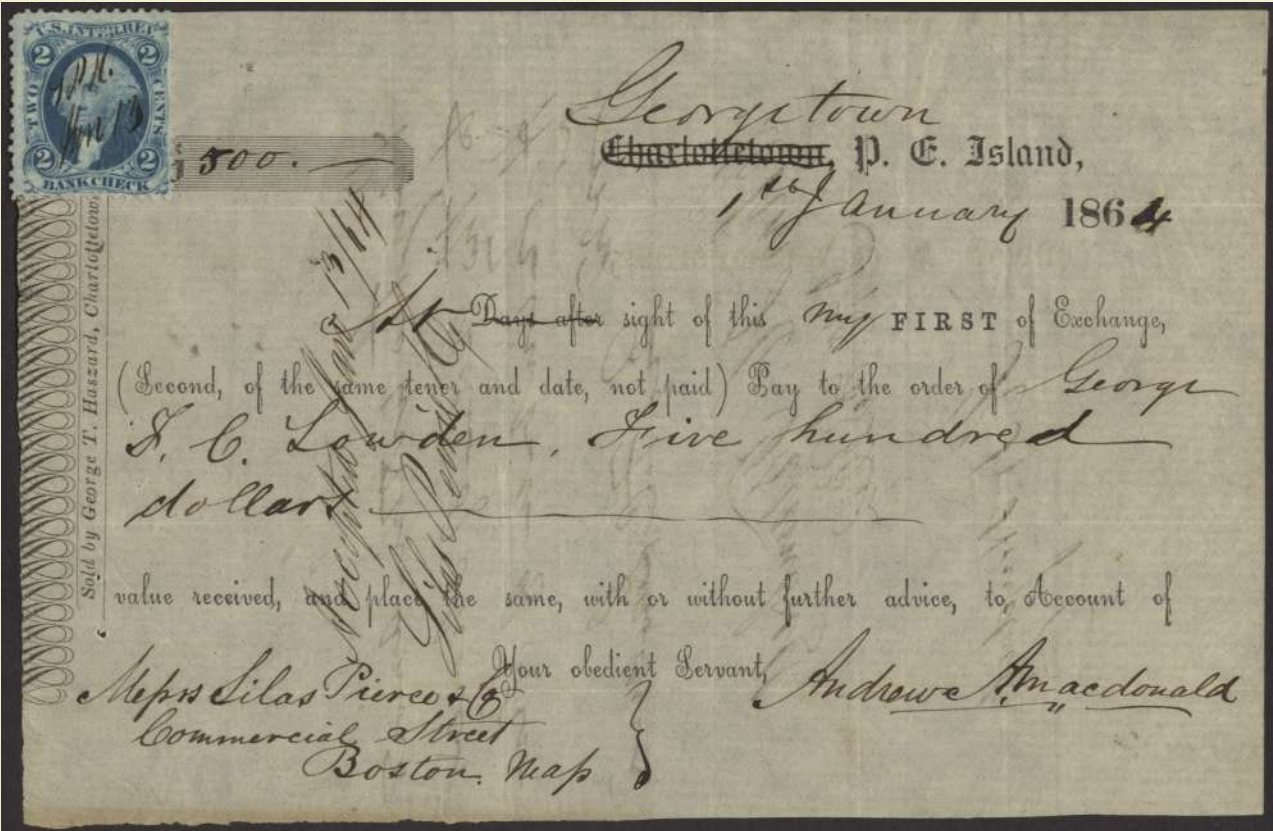 U.S. INTER. REV.
2 2
TWO CENTS
2 2
BANK CHECK
500.
Georgetown
Charlottetown, P. E. Island,
1st January 1864
At Days after sight of this my FIRST of Exchange,
(Second, of the same tener and date, not paid) Pay to the order of George
C. Lowden, Five hundred
dollars
value received, and place the same, with or without further advice, to Account of
Your obedient Servant,
Andrew A. Macdonald
Messrs Silas Pierce & Co
Commercial Street
Boston. Mass
Accepted Jany 13/64
Silas Peirce & Co
Sold by George T. Haszard, Charlottetown